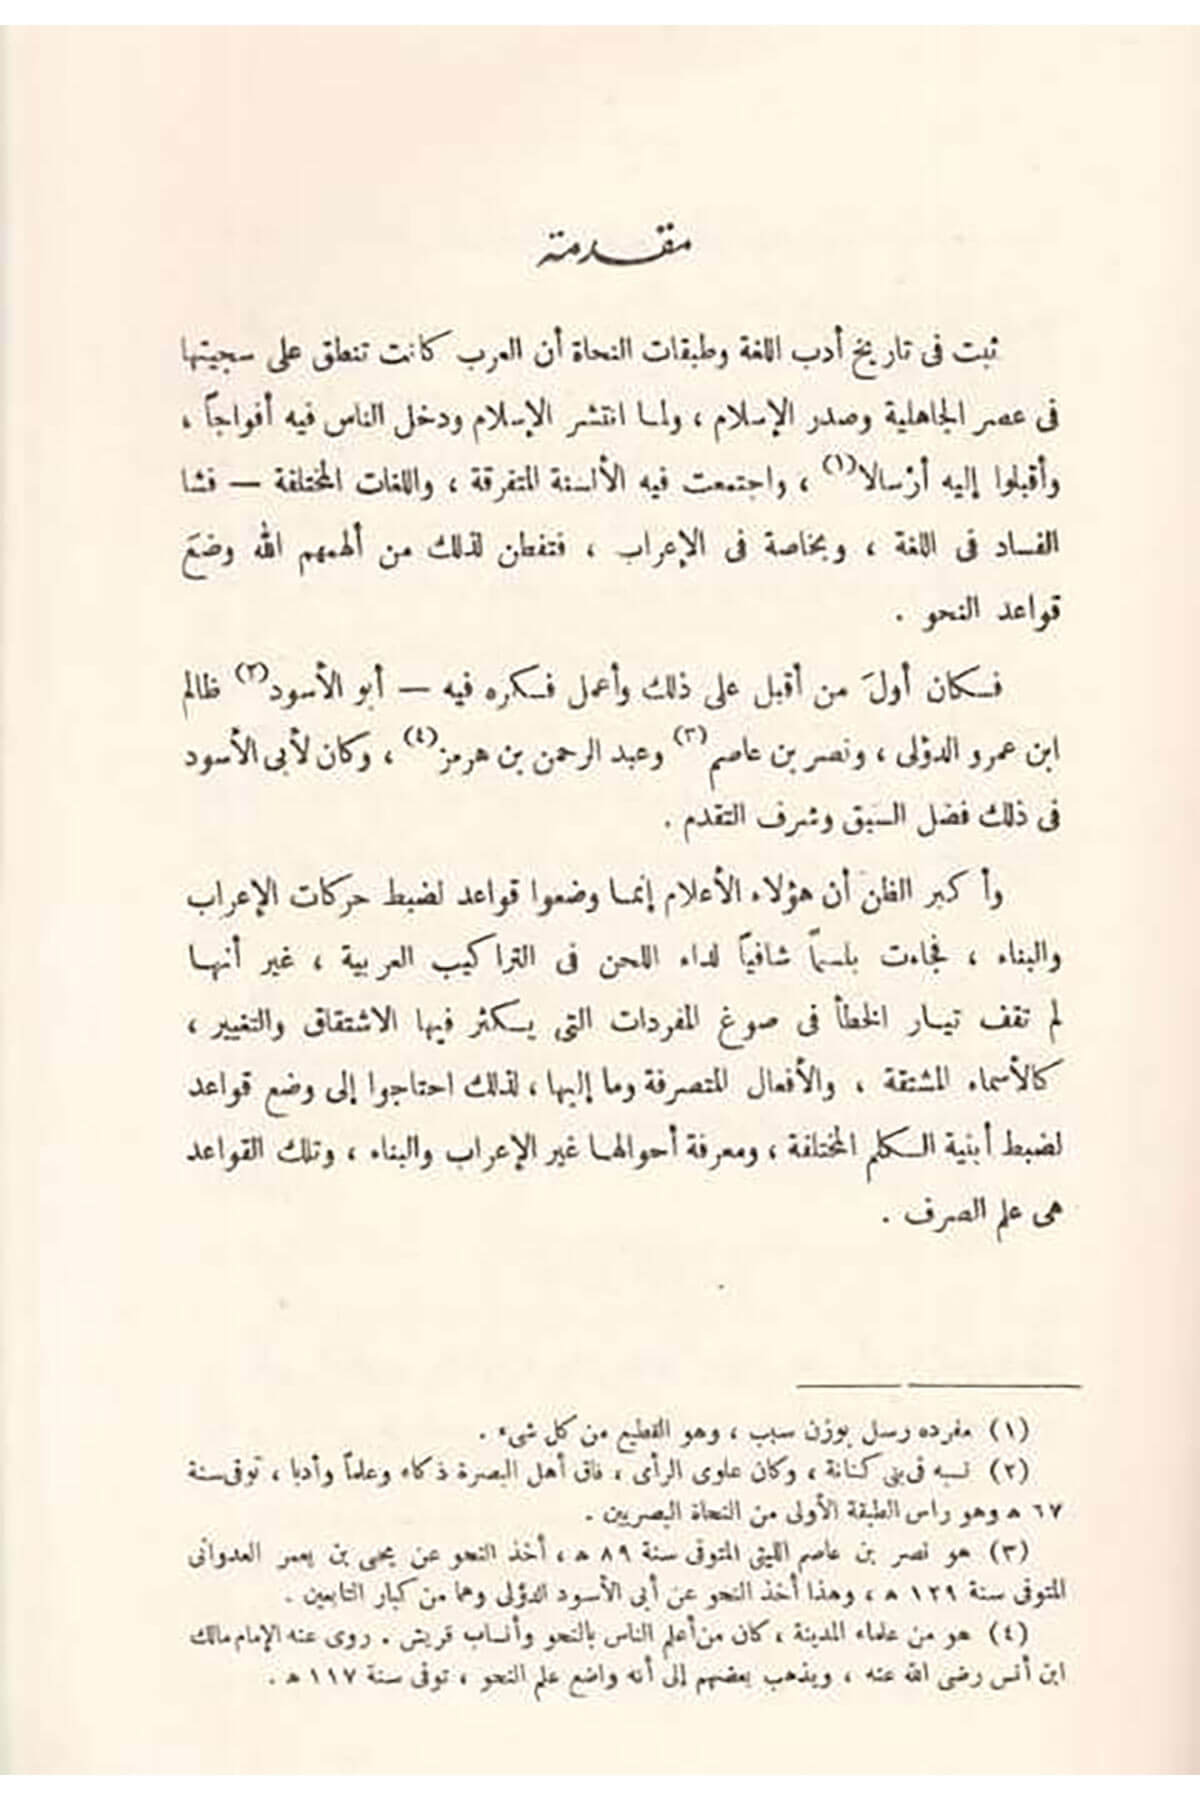 مقدمة
ثبت فى تاريخ أدب اللغة وطبقات النحاة أن العرب كانت تنطق على سجيتها
فى عصر الجاهلية وصدر الإسلام ، ولما انتشر الإسلام ودخل الناس فيه أفواجاً ،
وأقبلوا إليه أرْسالا(١) ، واجتمعت فيه الألسنة المتفرقة ، واللغات المختلفة — فشا
الفساد فى اللغة ، وبخاصة فى الإعراب ، فتفطن لذلك من ألهمهم الله وضعَ
قواعد النحو .
فكان أولَ من أقبل على ذلك وأعمل فكره فيه — أبو الأسود(٢) ظالم
ابن عمرو الدؤلى ، ونصر بن عاصم(٣) وعبد الرحمن بن هرمز(٤) ، وكان لأبى الأسود
فى ذلك فضل السبق وشرف التقدم .
وأكبر الظن أن هؤلاء الأعلام إنما وضعوا قواعد لضبط حركات الإعراب
والبناء ، فجاءت بلسماً شافياً لداء اللحن فى التراكيب العربية ، غير أنها
لم تقف تيار الخطأ فى صوغ المفردات التى يكثر فيها الاشتقاق والتغيير ،
كالأسماء المشتقة ، والأفعال المتصرفة وما إليها ، لذلك احتاجوا إلى وضع قواعد
لضبط أبنية الكلم المختلفة ، ومعرفة أحوالها غير الإعراب والبناء ، وتلك القواعد
هى علم الصرف .
(١) مفرده رسل بوزن سبب ، وهو القطيع من كل شىء .
(٢) نسبه فى بنى كنانة ، وكان علوى الرأى ، فاق أهل البصرة ذكاء وعلماً وأدبا ، توفى سنة
٦٧ ه وهو رأس الطبقة الأولى من النحاة البصريين .
(٣) هو نصر بن عاصم الليثى المتوفى سنة ٨٩ ه ، أخذ النحو عن يحيى بن يعمر العدوانى
المتوفى سنة ١٢٩ ه ، وهذا أخذ النحو عن أبى الأسود الدؤلى وهما من كبار التابعين .
(٤) هو من علماء المدينة ، كان من أعلم الناس بالنحو وأنساب قريش . روى عنه الإمام مالك
ابن أنس رضى الله عنه ، ويذهب بعضهم إلى أنه واضع علم النحو ، توفى سنة ١١٧ ه .